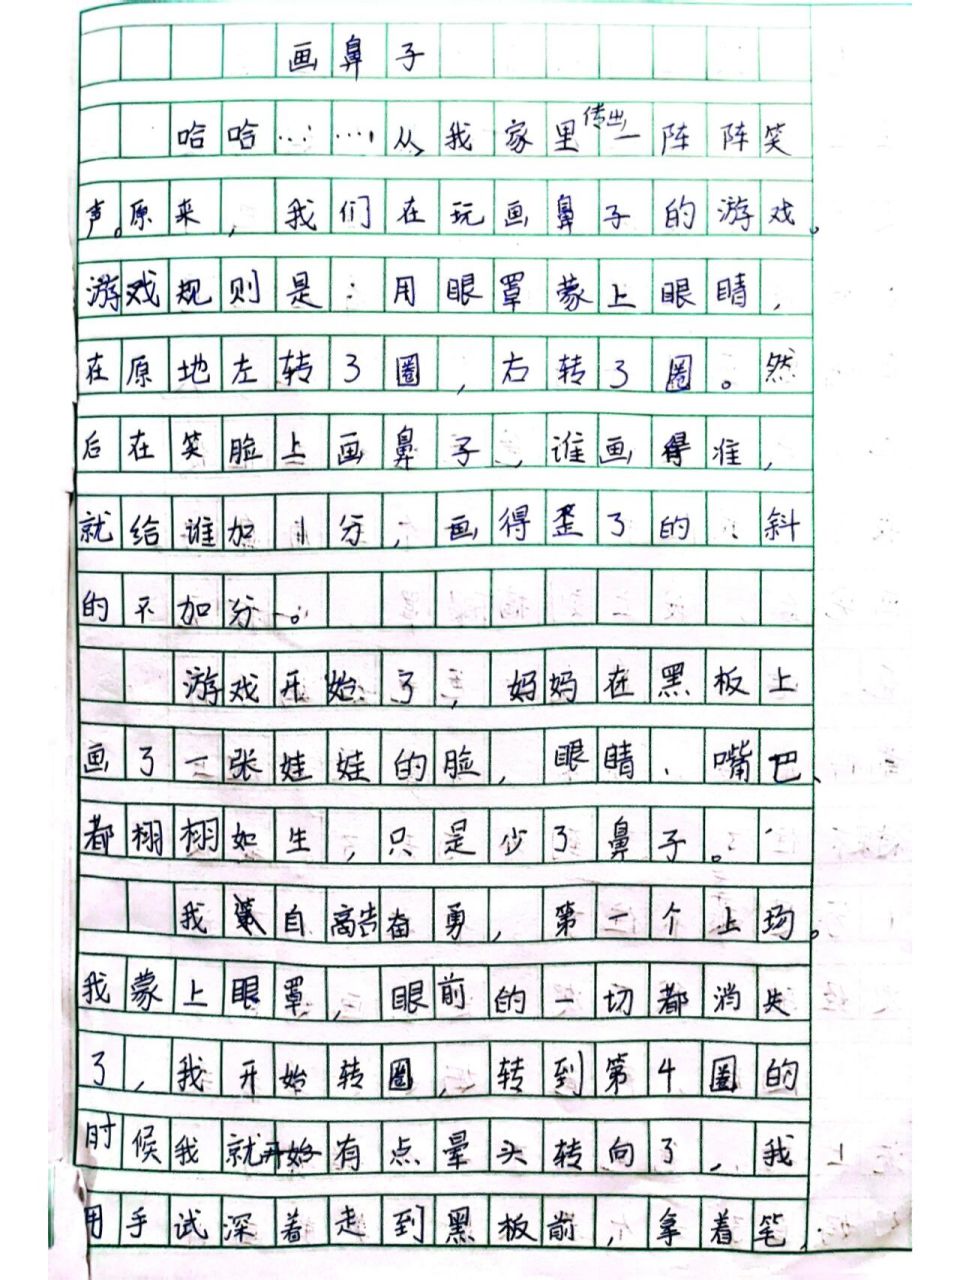 画鼻子
哈哈……从我家里传出一阵阵笑
声。原来,我们在玩画鼻子的游戏。
游戏规则是:用眼罩蒙上眼睛,
在原地左转3圈,右转3圈。然
后在笑脸上画鼻子,谁画得准,
就给谁加1分,画得歪了的、斜
的不加分。
游戏开始了,妈妈在黑板上
画了一张娃娃的脸,眼睛、嘴巴、
都栩栩如生,只是少了鼻子。
我自告奋勇,第一个上场。
我蒙上眼罩,眼前的一切都消失
了,我开始转圈,转到第4圈的
时候我就开始有点晕头转向了,我
用手试深着走到黑板前,拿着笔,